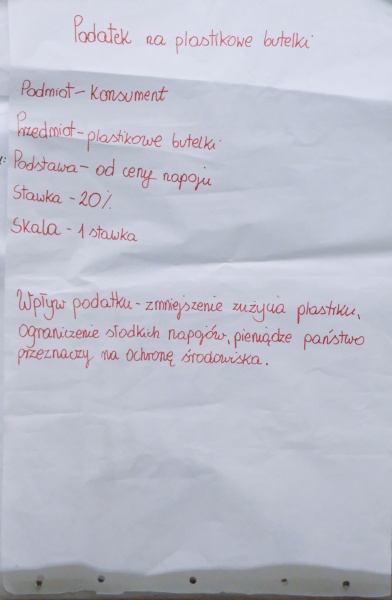 Podatek na plastikowe butelki
Podmiot - Konsument
Przedmiot - plastikowe butelki
Podstawa - od ceny napoju
Stawka - 20%
Skala - 1 stawka
Wpływ podatku - zmniejszenie zużycia plastiku,
ograniczenie słodkich napojów, pieniądze państwo
przeznaczy na ochronę środowiska.